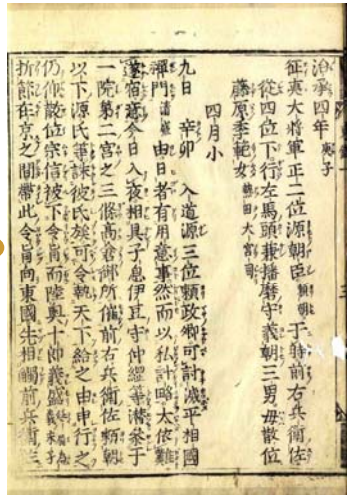 治承四年庚子
征夷大將軍正二位源朝臣頼朝于時前右兵衛佐
從四位下行左馬頭兼播磨守義朝三男毋散位
藤原季範女熱田大宮司
四月小
九日 辛卯 入道源三位頼政卿可討滅平相國
禪門清盛由日者有用意事然而以私計略太依難
遂宿意今日入夜相具子息伊豆守仲綱等潜參于
一院第二宮之三條高倉御所催前右兵衛佐頼朝
以下源氏等誅彼氏族可令執天下給之由申行之
仍仰散位宗信被下令旨而陸奥十郎義盛廷尉為義末子
折節在京之間帶此令旨向東國先相觸前兵衛